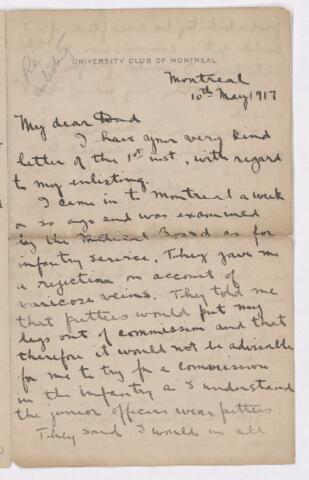 Re
enlisting
UNIVERSITY CLUB OF MONTREAL
Montreal
10th May 1917
My dear Dad
I have your very kind
letter of the 1st inst, with regard
to my enlisting.
I came in to Montreal a week
or so ago and was examined
by the Medical Board as for
infantry service. They gave me
a rejection on account of
varicose veins. They told me
that puttees would put my
legs out of commission and that
therefore it would not be advisable
for me to try for a commission
in the infantry as I understand
the junior officers wear puttees.
They said I would in all